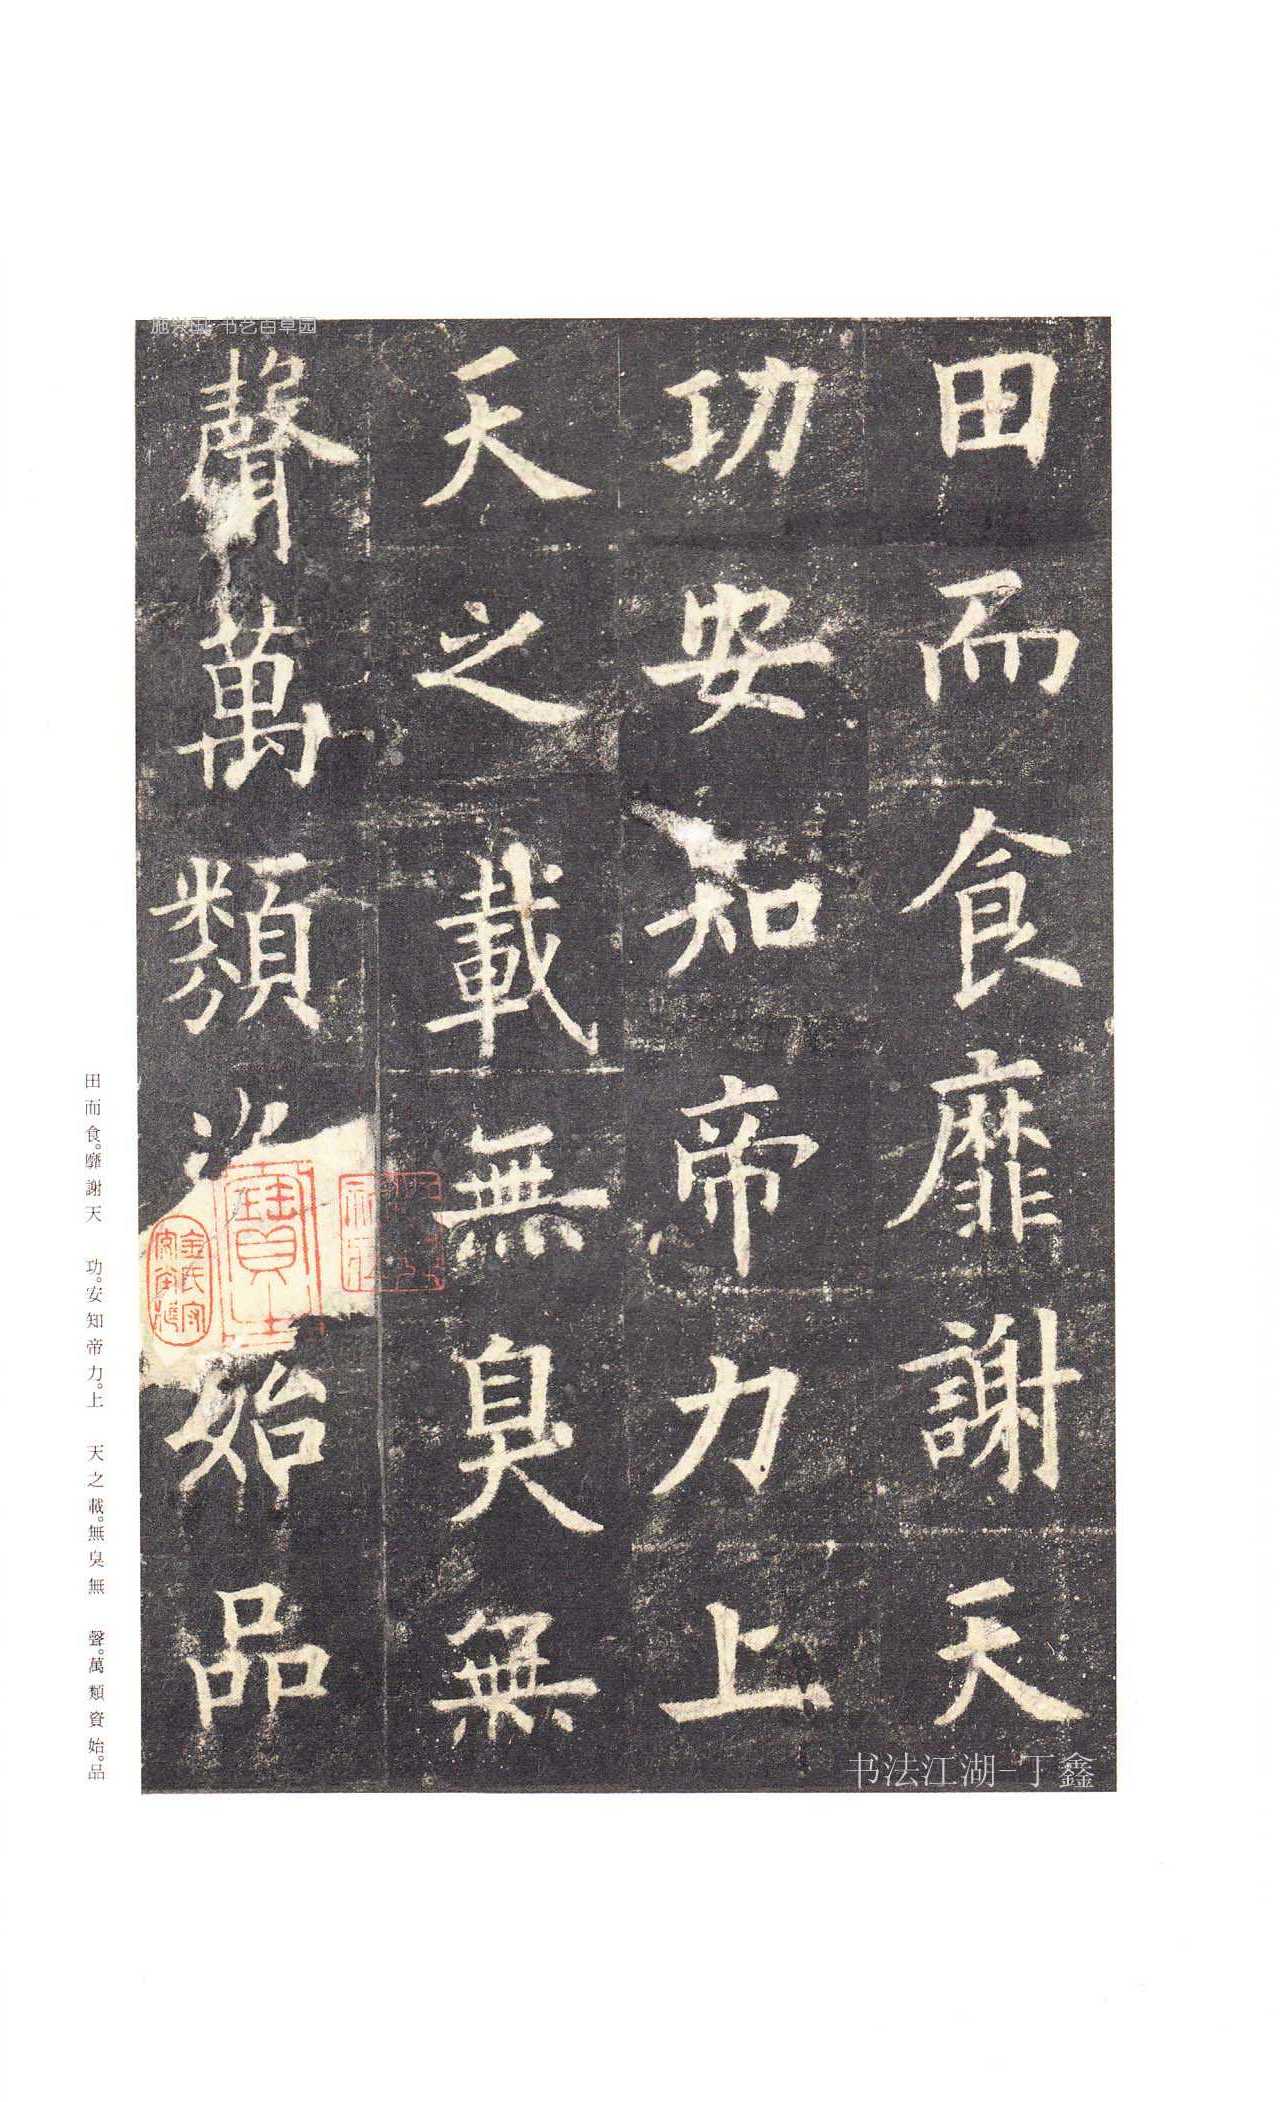 田而食靡謝天
功安知帝力上
天之載無臭無
聲萬類資始品
田而食。靡謝天　功。安知帝力。上　天之載。無臭無　聲。萬類資始。品
书艺百草园
书法江湖-丁鑫